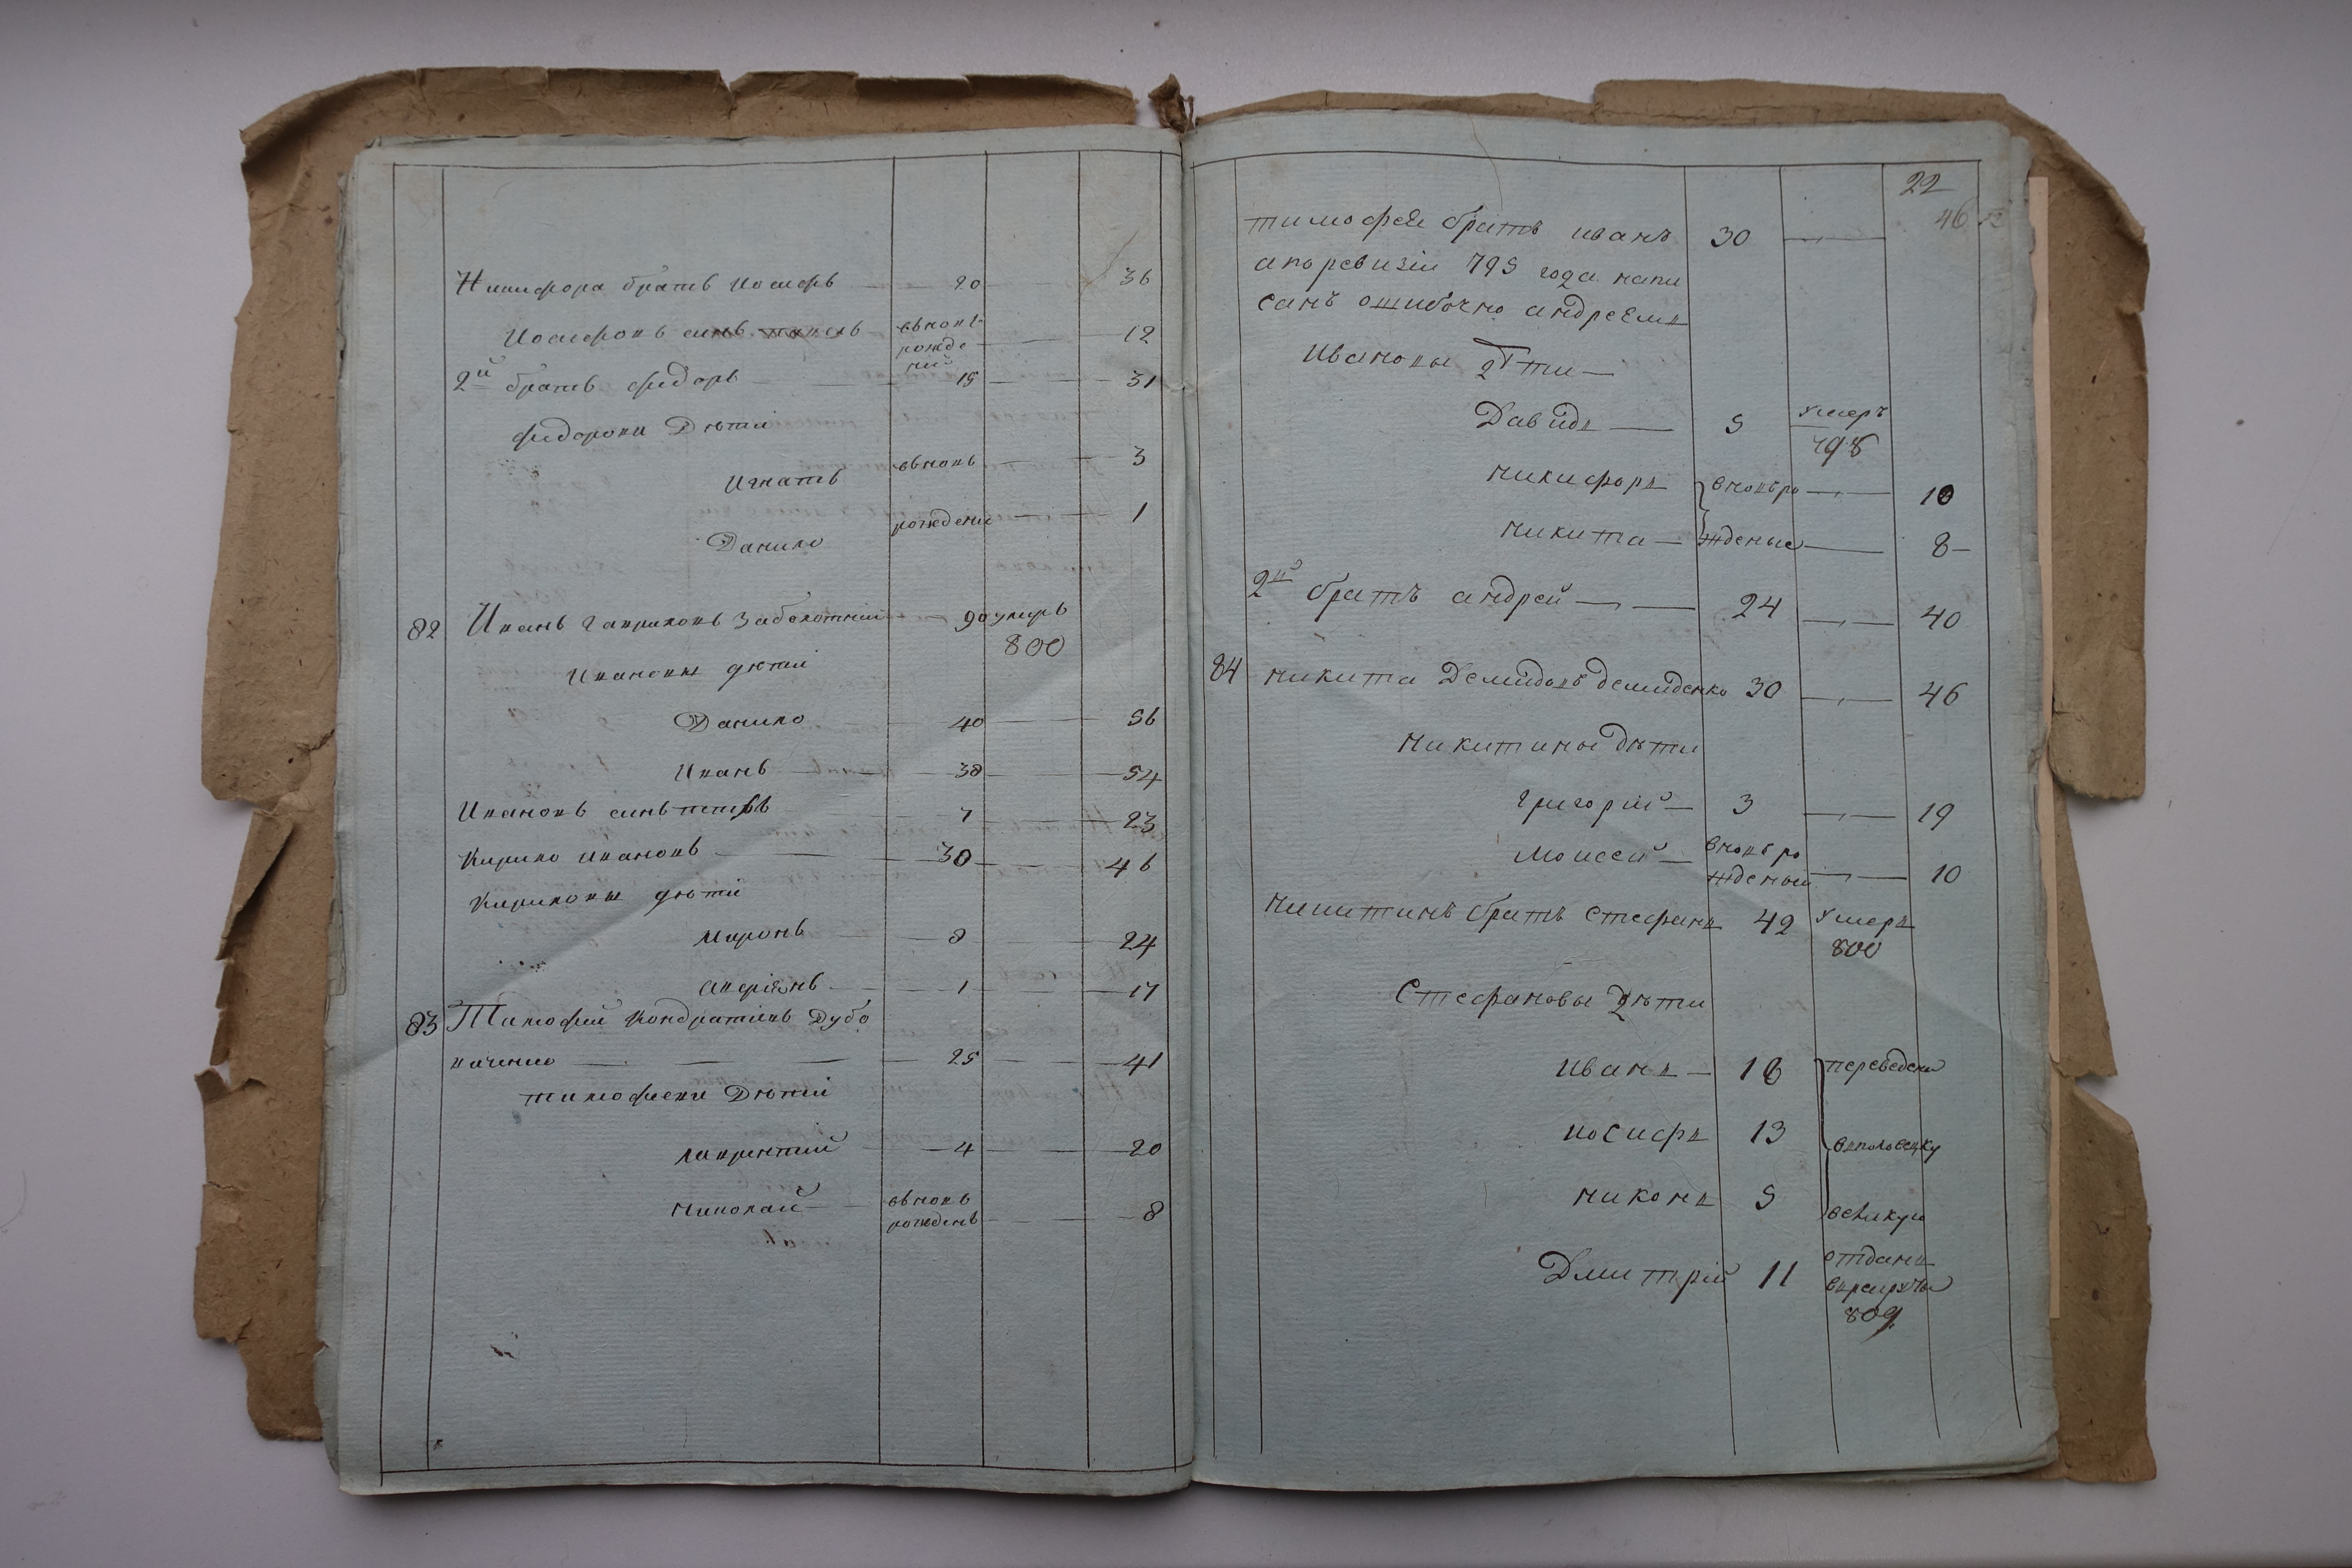 Никифора братъ Иосифъ 20 36
Иосифовъ синъ вновь 12
рожде
ний
2й братъ Фидоръ 15 31
Фидорови Дѣти
Игнатъ вновь 3
Данило рождени 1
82 Иванъ Гавриловъ Заболотний 90 умеръ
800
Ивановы дѣти
Данило 40 56
Иванъ 38 54
Ивановъ синъ 7 23
Кирило Ивановъ 30 46
Кириловы дѣти
Миронъ 8 24
1 17
83 Тимофий Кондратіевъ Дубо
25 41
Тимофиеви Дѣти
Лаврентий 4 20
Николай вновь 8
рожденъ
22
46
тимофея братъ иванъ 30
апоревизіи 795 года напи
санъ ошибочно андреемъ
Ивановы дѣти
Давидъ 5 умеръ
798
никифоръ вновьро 10
никита жденые 8
2й братъ андрей 24 40
84 никита Демидовъ демиденко 30 46
никитины дѣти
григорій 3 19
Моисей вновьро
жденый 10
никитинъ братъ Стефанъ 42 умеръ
800
Стефановы дѣти
иванъ 18 переведены
иосифъ 13
никонъ 5
Дмитрій 11 отданъ
врекруты
809